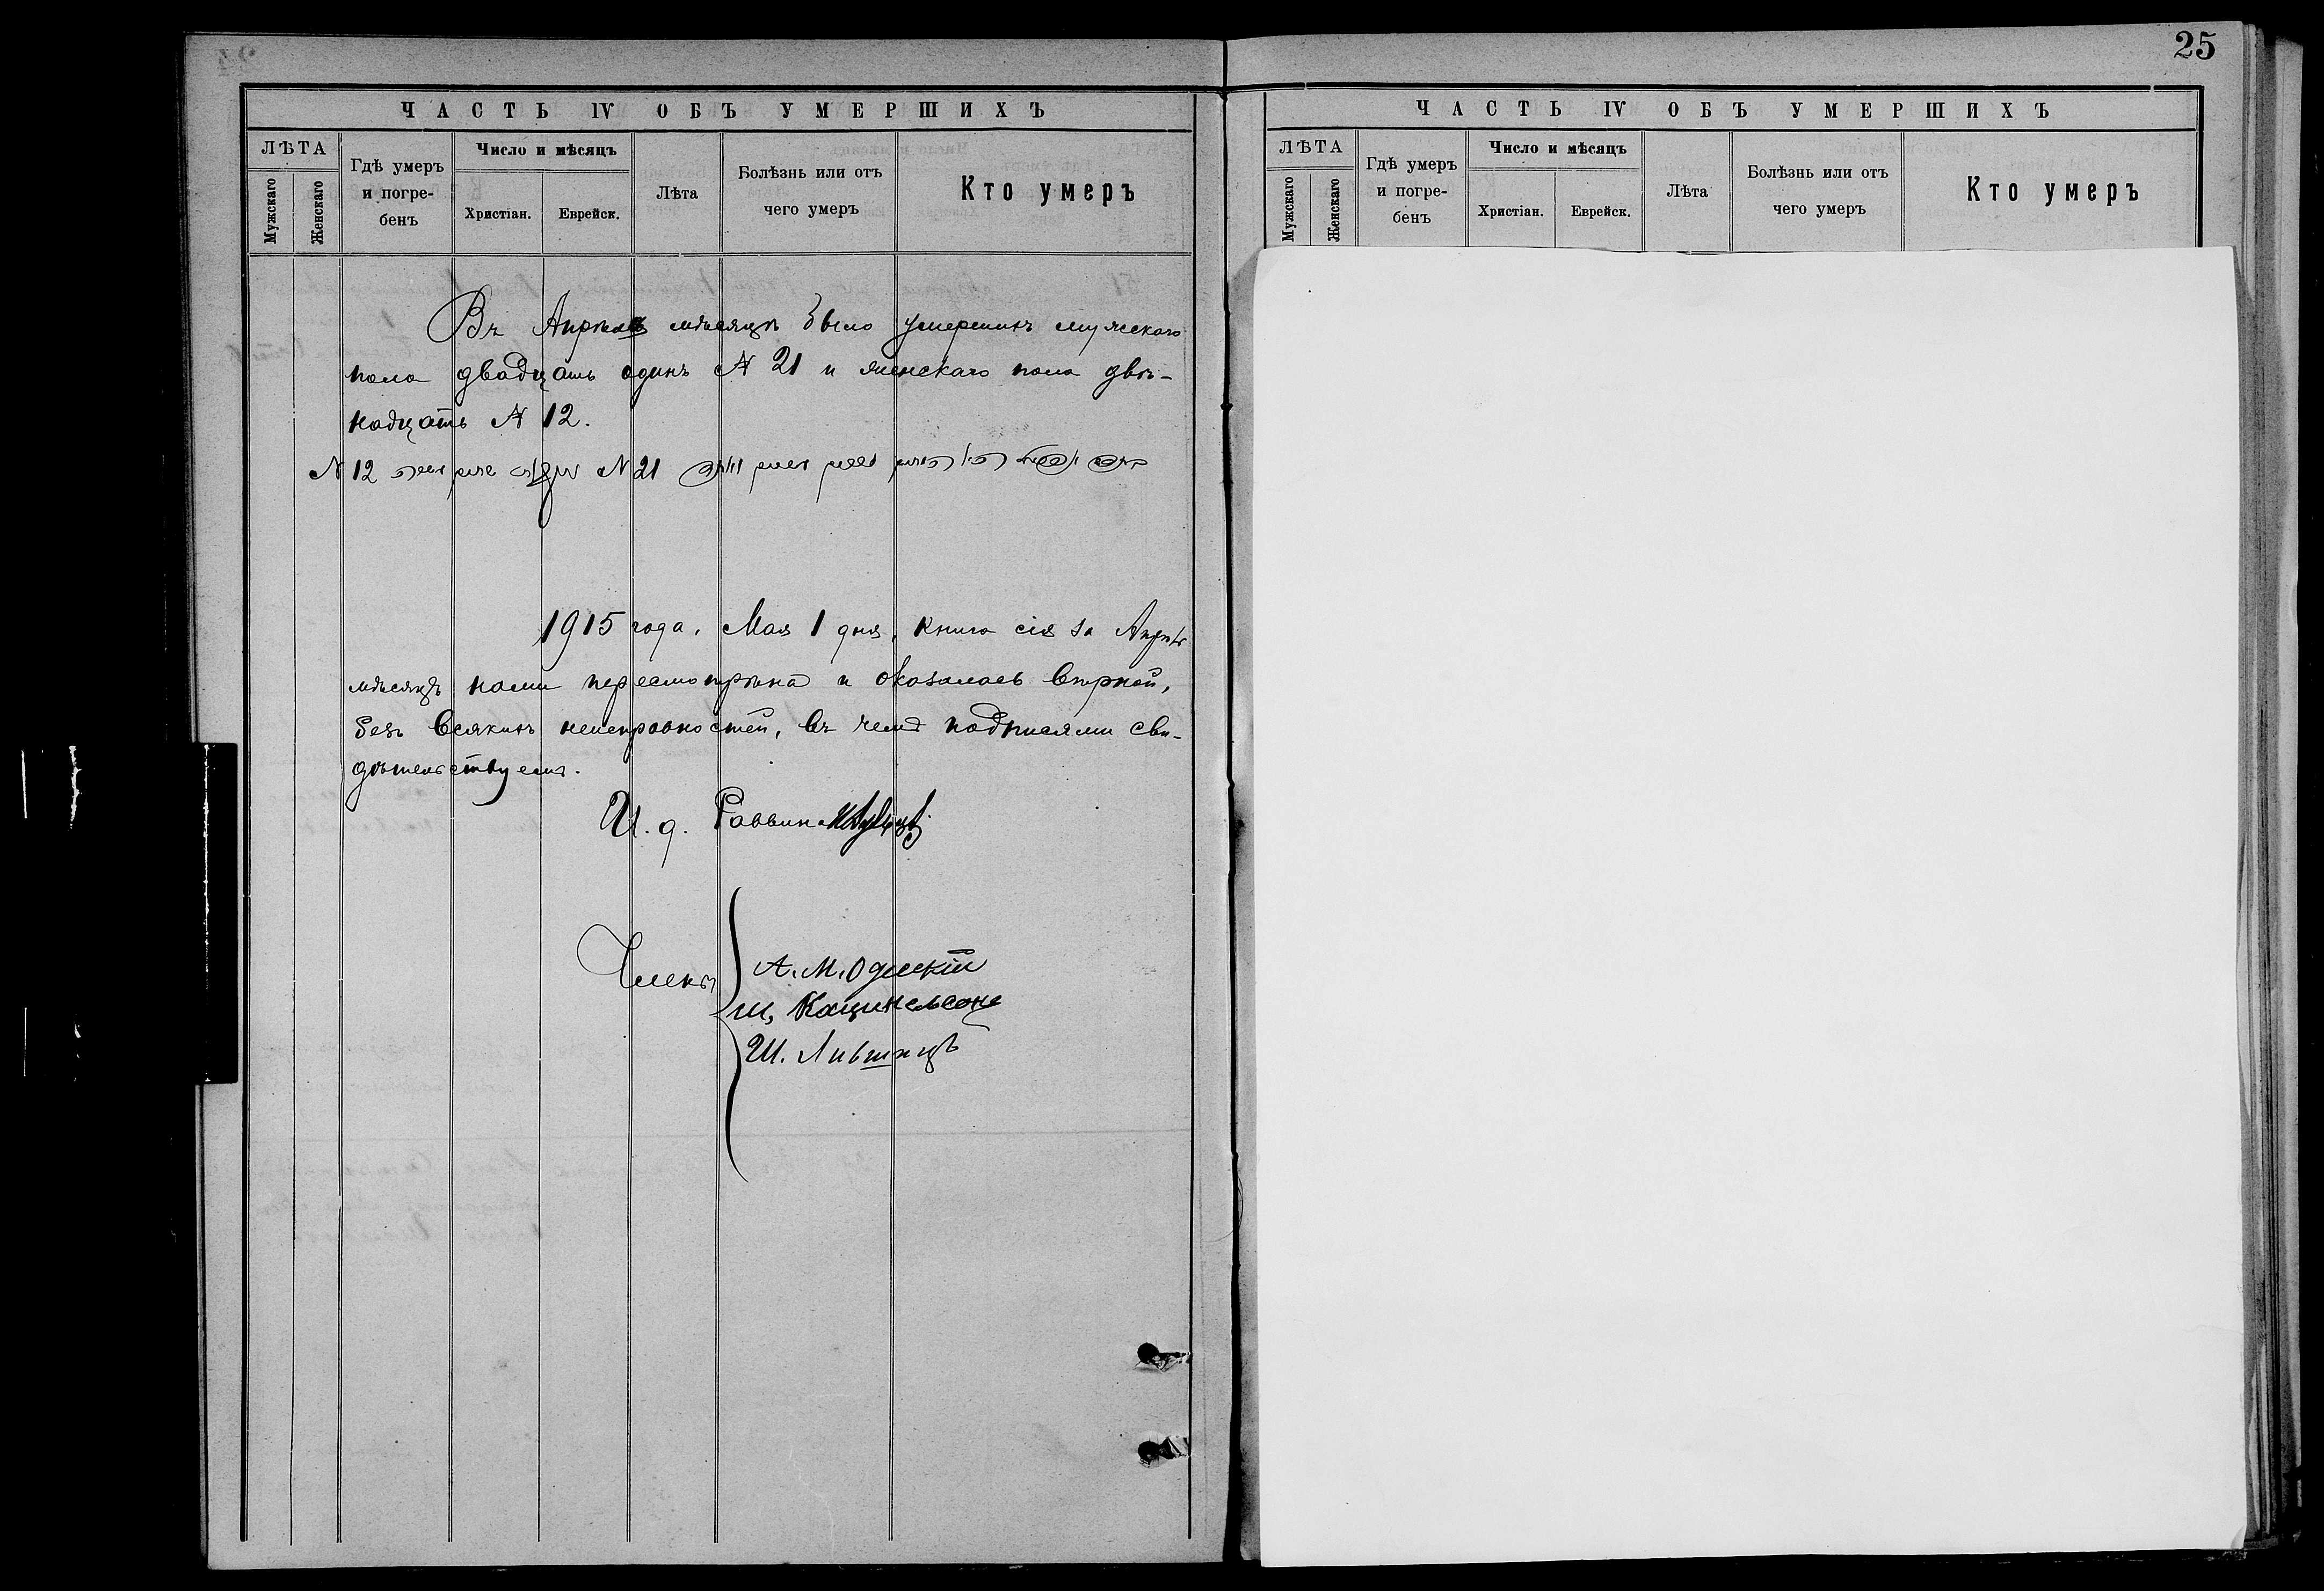 25
ЧАСТЬ IV ОБЪ УМЕРШИХЪ
ЛѢТА
Мужскаго
Женскаго
Гдѣ умеръ и погре-бенъ
Число и мѣсяцъ
Христіан.
Еврейск.
Лѣта
Болѣзнь или отъ чего умеръ
Кто умеръ
Въ Апрѣлѣ мѣсяцѣ было умершихъ мужскаго
пола двадцать одинъ № 21 и женскаго пола двѣ-
надцать № 12.
№ 12 № 21
1915 года, Мая 1 дня, книга сія за Апрѣль
мѣсяцъ нами пересмотрѣна и оказалась вѣрной,
безъ всякихъ неисправностей, въ чемъ подписями сви-
дѣтельствуемъ.
И. д. Раввина
Члены
А. М. Одескій
Ш. Кацнельсонъ
Ш. Лившицъ
ЧАСТЬ IV ОБЪ УМЕРШИХЪ
ЛѢТА
Мужскаго
Женскаго
Гдѣ умеръ и погре-бенъ
Число и мѣсяцъ
Христіан.
Еврейск.
Лѣта
Болѣзнь или отъ чего умеръ
Кто умеръ